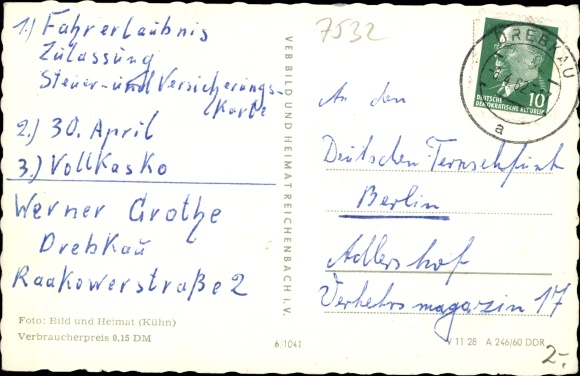 1.) Fahrerlaubnis
Zulassung
Steuer- und Versicherungs-
karte
2.) 30. April
3.) Vollkasko
Werner Grothe
Drebkau
Raakowerstraße 2
Foto: Bild und Heimat (Kühn)
Verbraucherpreis 0,15 DM
VEB BILD UND HEIMAT REICHENBACH I. V.
6/1041
7532
DREBKAU
a
DEUTSCHE
DEMOKRATISCHE REPUBLIK
10
An den
Deutschen Fernsehfunk
Berlin
Adlershof
Verkehrsmagazin 17
V 11 28 A 246/60 DDR
2-.